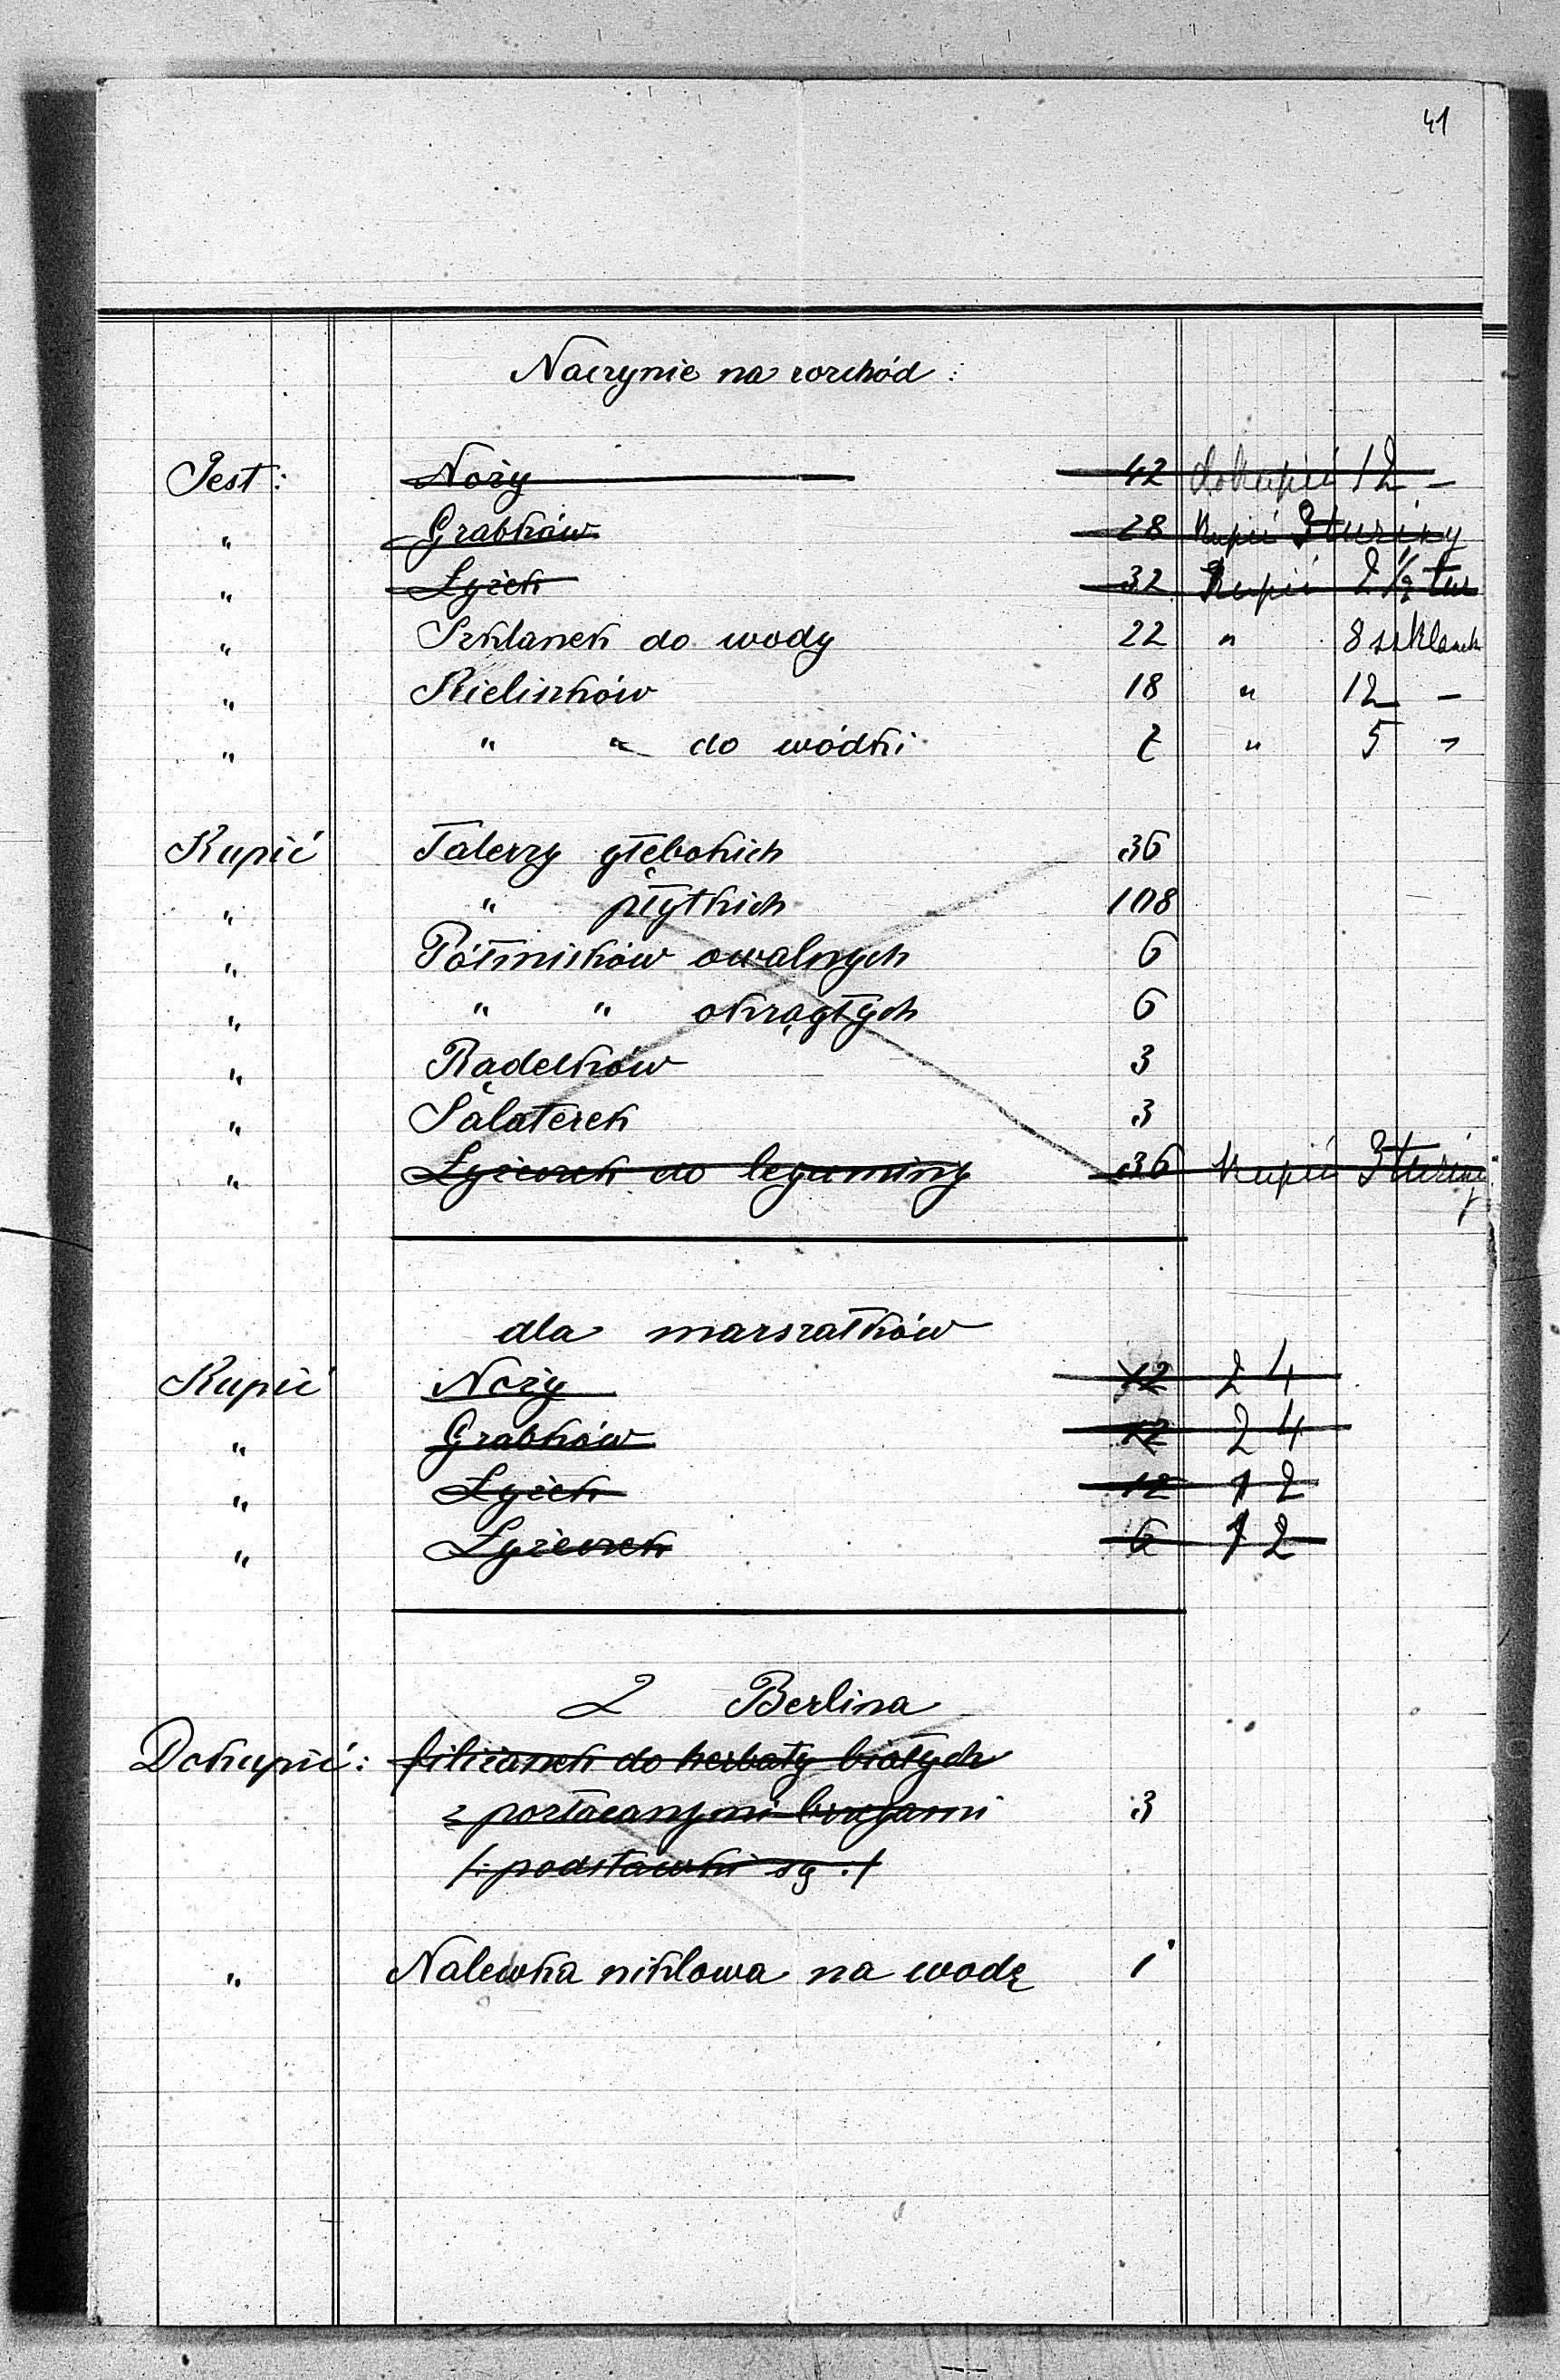 41
Naczynie na rozchód:
Jest: Noży 42 dokupić 12 –
" Grabków 28 Kupić 3 tuziny
" Łyżek 32 Kupić 2 1/2 tuz
" Szklanek do wody 22 " 8 szklanek
" Kieliszków 18 " 12 –
" " " do wódki 7 " 5 "
Kupić Talerzy głębokich 36
" " płytkich 108
" Półmisków owalnych 6
" " " okrągłych 6
" Rądelków 3
" Salaterek 3
" Łyżeczek do leguminy 36 Kupić 3 tuziny
dla marszałków
Kupić Noży 12 24
" Grabków 12 24
" Łyżek 12 12
" Łyżeczek 6 12
Z Berlina
Dokupić: filiżanek do herbaty białych
z pozłacanymi brzegami 3
/: podstawki są :/
" Nalewka niklowa na wodę 1